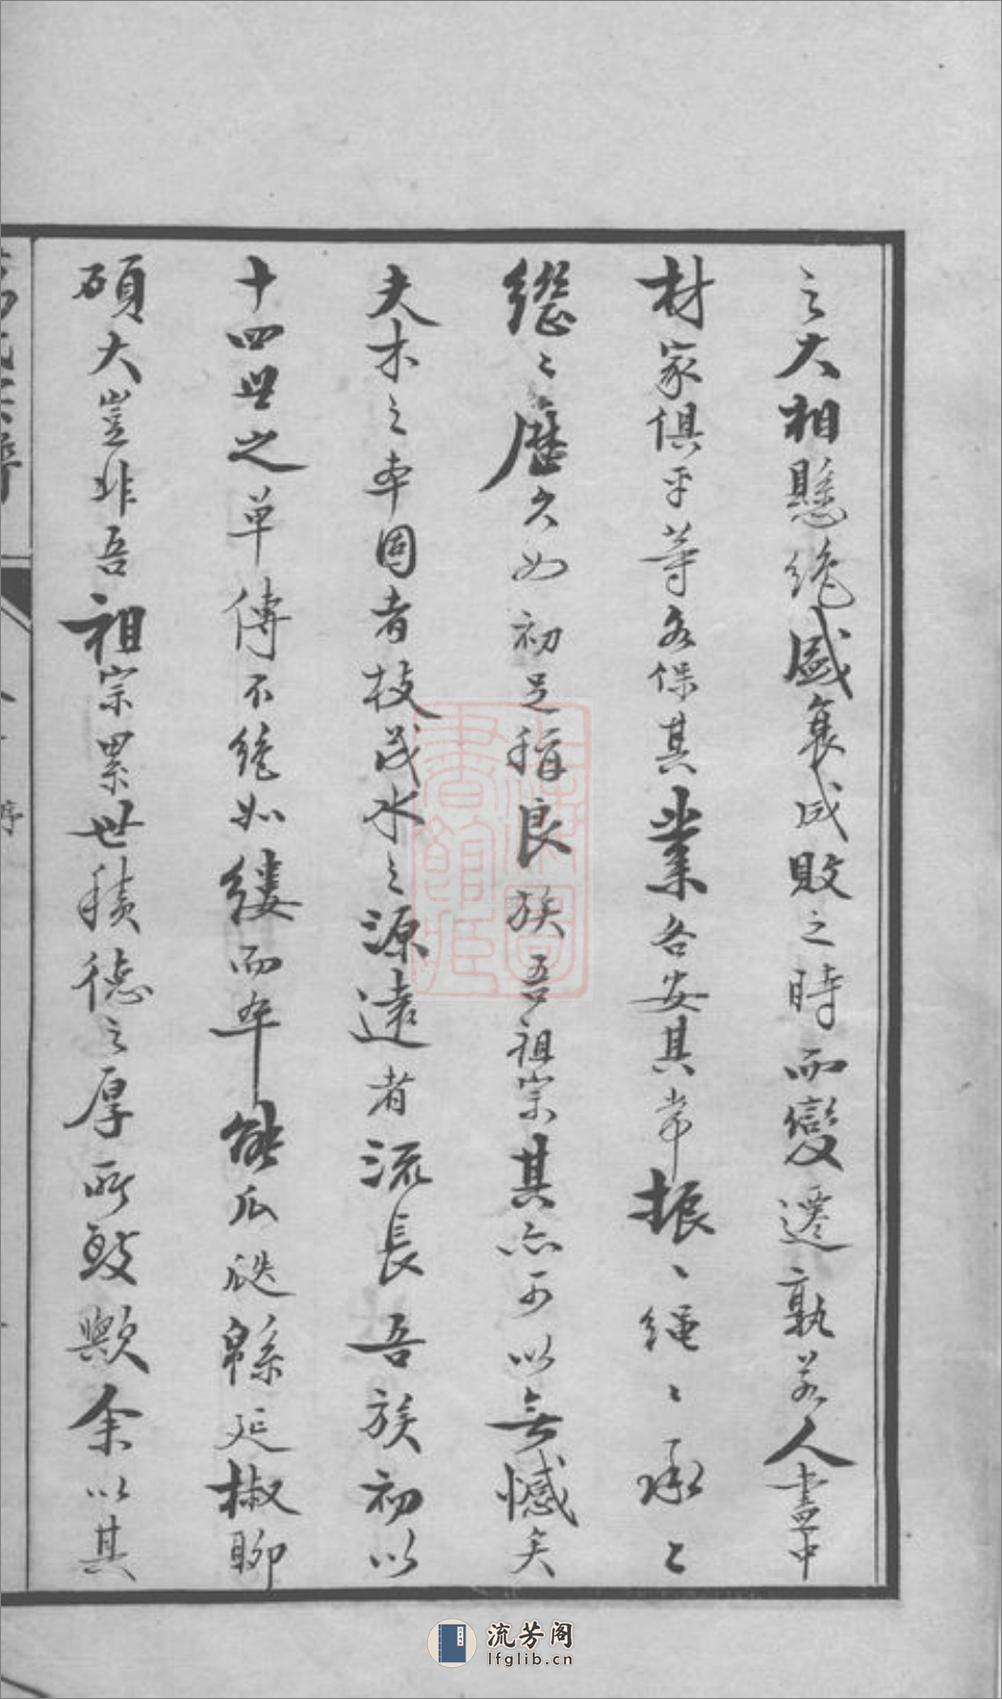 之大相懸絶盛衰成敗之時而變遷孰若人盡中
材家俱平等各保其業各安其常振〻繩〻承〻
繼〻歷久如初足稱良族吾祖宗其亦可以無憾矣
夫木之本固者枝茂水之源遠者流長吾族初以
十四世之單傳不絶如縷而卒能瓜瓞緜延椒聊
碩大豈非吾祖宗累世積德之厚所致歟余以其
序
流芳阁
lfglib.cn